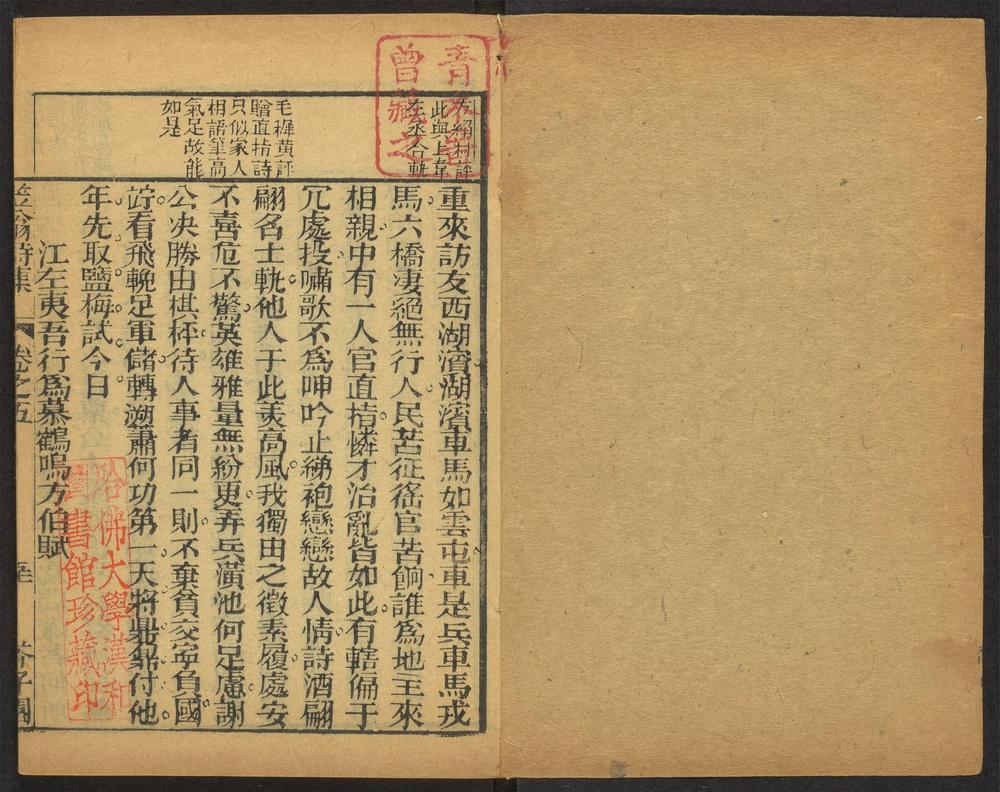 方紹村評
此與上韋
左丞合軼
毛穉黃評
贈直指詩
只似家人
相語筆高
氣足故能
如是
重來訪友西湖濱湖濱車馬如雲屯車是兵車馬戎
馬六橋淒絕無行人民苦征徭官苦餉誰爲地主來
相親中有一人官直指憐才治亂皆如此有轄偏于
冗處投嘯歌不爲呻吟止綈袍戀戀故人情詩酒翩
翩名士軌他人于此羨高風我獨由之徵素履處安
不喜危不驚英雄雅量無紛更弄兵潢池何足慮謝
公决勝由棋枰待人事者同一則不棄貧交寧負國
竚看飛輓足軍儲轉遡蕭何功第一天將鼎鼐付他
年先取鹽梅試今日
江左夷吾行爲慕鶴鳴方伯賦
笠翁詩集
卷之五
芥子園
曾藏之
哈佛大學漢和
圖書館珍藏印